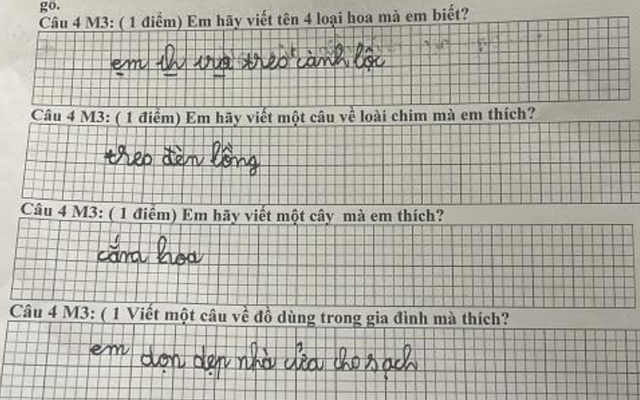 gõ.
Câu 4 M3: ( 1 điểm) Em hãy viết tên 4 loại hoa mà em biết?
em treo cành lộc
Câu 4 M3: ( 1 điểm) Em hãy viết một câu về loài chim mà em thích?
treo đèn lồng
Câu 4 M3: ( 1 điểm) Em hãy viết một cây mà em thích?
cắm hoa
Câu 4 M3: ( 1 Viết một câu về đồ dùng trong gia đình mà thích?
em dọn dẹp nhà cửa cho sạch